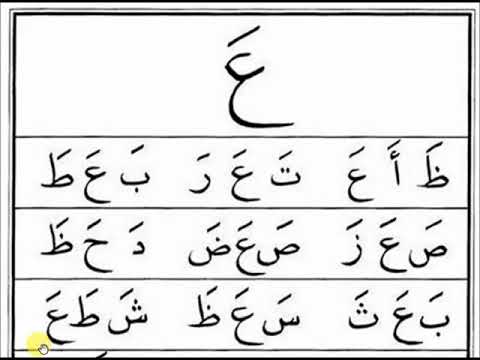 عَ
ظَ أَ عَ تَ عَ رَ بَ عَ طَ
صَ عَ زَ صَ عَ ضَ دَ حَ ظَ
بَ عَ ثَ سَ عَ ظَ شَ طَ عَ